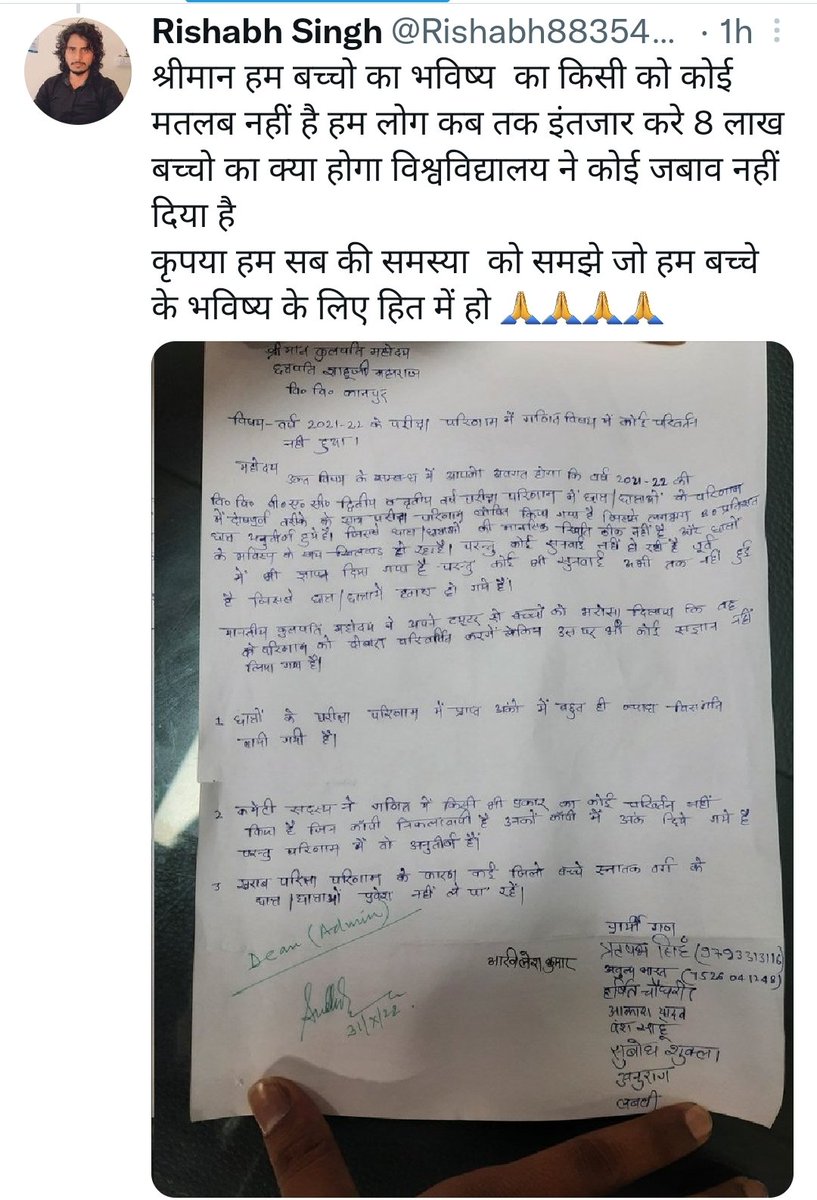 Rishabh Singh @Rishabh88354... · 1h
श्रीमान हम बच्चो का भविष्य का किसी को कोई
मतलब नहीं है हम लोग कब तक इंतजार करे 8 लाख
बच्चो का क्या होगा विश्वविद्यालय ने कोई जबाव नहीं
दिया है
कृपया हम सब की समस्या को समझे जो हम बच्चे
के भविष्य के लिए हित में हो 🙏🙏🙏🙏
श्रीमान कुलपति महोदय
छत्रपति शाहूजी महाराज
वि० वि० कानपुर
विषय- वर्ष 2021-22 के परीक्षा परिणाम में गणित विषय में कोई परिवर्तन
नहीं हुआ।
महोदय
उक्त विषय के सम्बन्ध में आपको अवगत होगा कि वर्ष 2021-22 की
वि० वि० बी० एस० सी० द्वितीय व तृतीय वर्ष परीक्षा परिणाम में छात्र/छात्राओं के परिणाम
में दोषपूर्ण तरीके के साथ परीक्षा परिणाम घोषित किया गया है जिसमे लगभग 80 प्रतिशत
छात्र अनुतीर्ण हुये है। जिससे छात्र/छात्राओं की मानसिक स्थिति ठीक नहीं है और छात्रों
के भविष्य के साथ खिलवाड़ हो रहा है। परन्तु कोई सुनवाई नहीं हो रही है पूर्व
में भी ज्ञापन दिया गया है परन्तु कोई भी सुनवाई अभी तक नहीं हुई
है जिससे छात्र/छात्राये हताश हो गये है।
माननीय कुलपति महोदय ने अपने ट्यूटर से बच्चों को भरोसा दिलाया कि वह
के परिणाम को दोबारा परिवर्तित करेगें लेकिन उस पर भी कोई संज्ञान नहीं
लिया गया है।
1. छात्रों के परीक्षा परिणाम में प्राप्त अंको में बहुत ही ज्यादा विसंगति
पायी गयी है।
2 कमेटी सदस्य ने गणित में किसी भी प्रकार का कोई परिवर्तन नहीं
किया है जिन कॉपी निकलवायी है उनकी कॉपी में अंक दिये गये है
परन्तु परिणाम में वो अनुतीर्ण है।
3 खराब परिक्षा परिणाम के कारण कई जिलो बच्चे स्नातक वर्ग के
छात्र/छात्राओं प्रवेश नहीं ले पा रहें।
Dean (Admin)
31/X/22
अखिलेश कुमार
प्रार्थी गण
सिंह (9793313116)
अतुल्य भारत (7526041248)
हर्षित चौधरी
आकाश यादव
वंश साहू
सुबोध शुक्ला
अनुराग